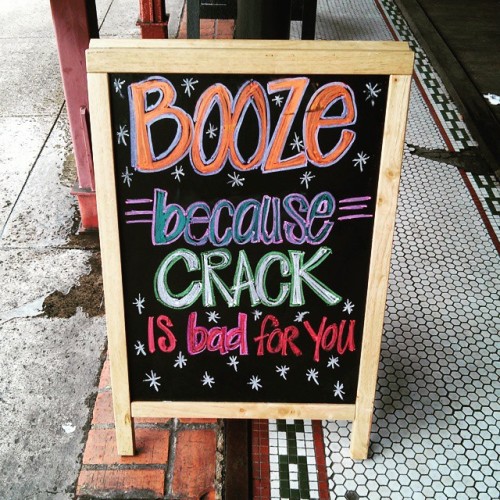 BOOZE
because
CRACK
IS bad for YOU